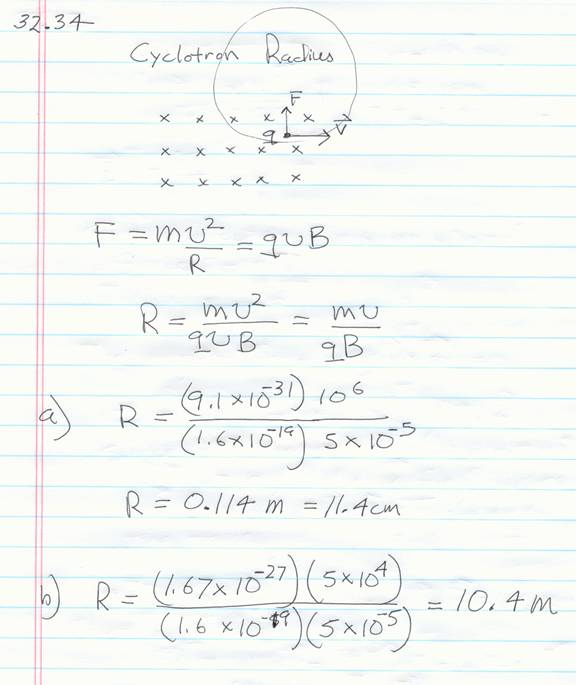 32.34
Cyclotron Radius
F
x x x x x
q v⃗
x x x x x
x x x x x
F = mv²/R = qvB
R = mv²/qvB = mv/qB
a) R = (9.1×10⁻³¹) 10⁶/(1.6×10⁻¹⁹) 5×10⁻⁵
R = 0.114 m = 11.4cm
b) R = (1.67×10⁻²⁷)(5×10⁴)/(1.6×10⁻¹⁹)(5×10⁻⁵) = 10.4m